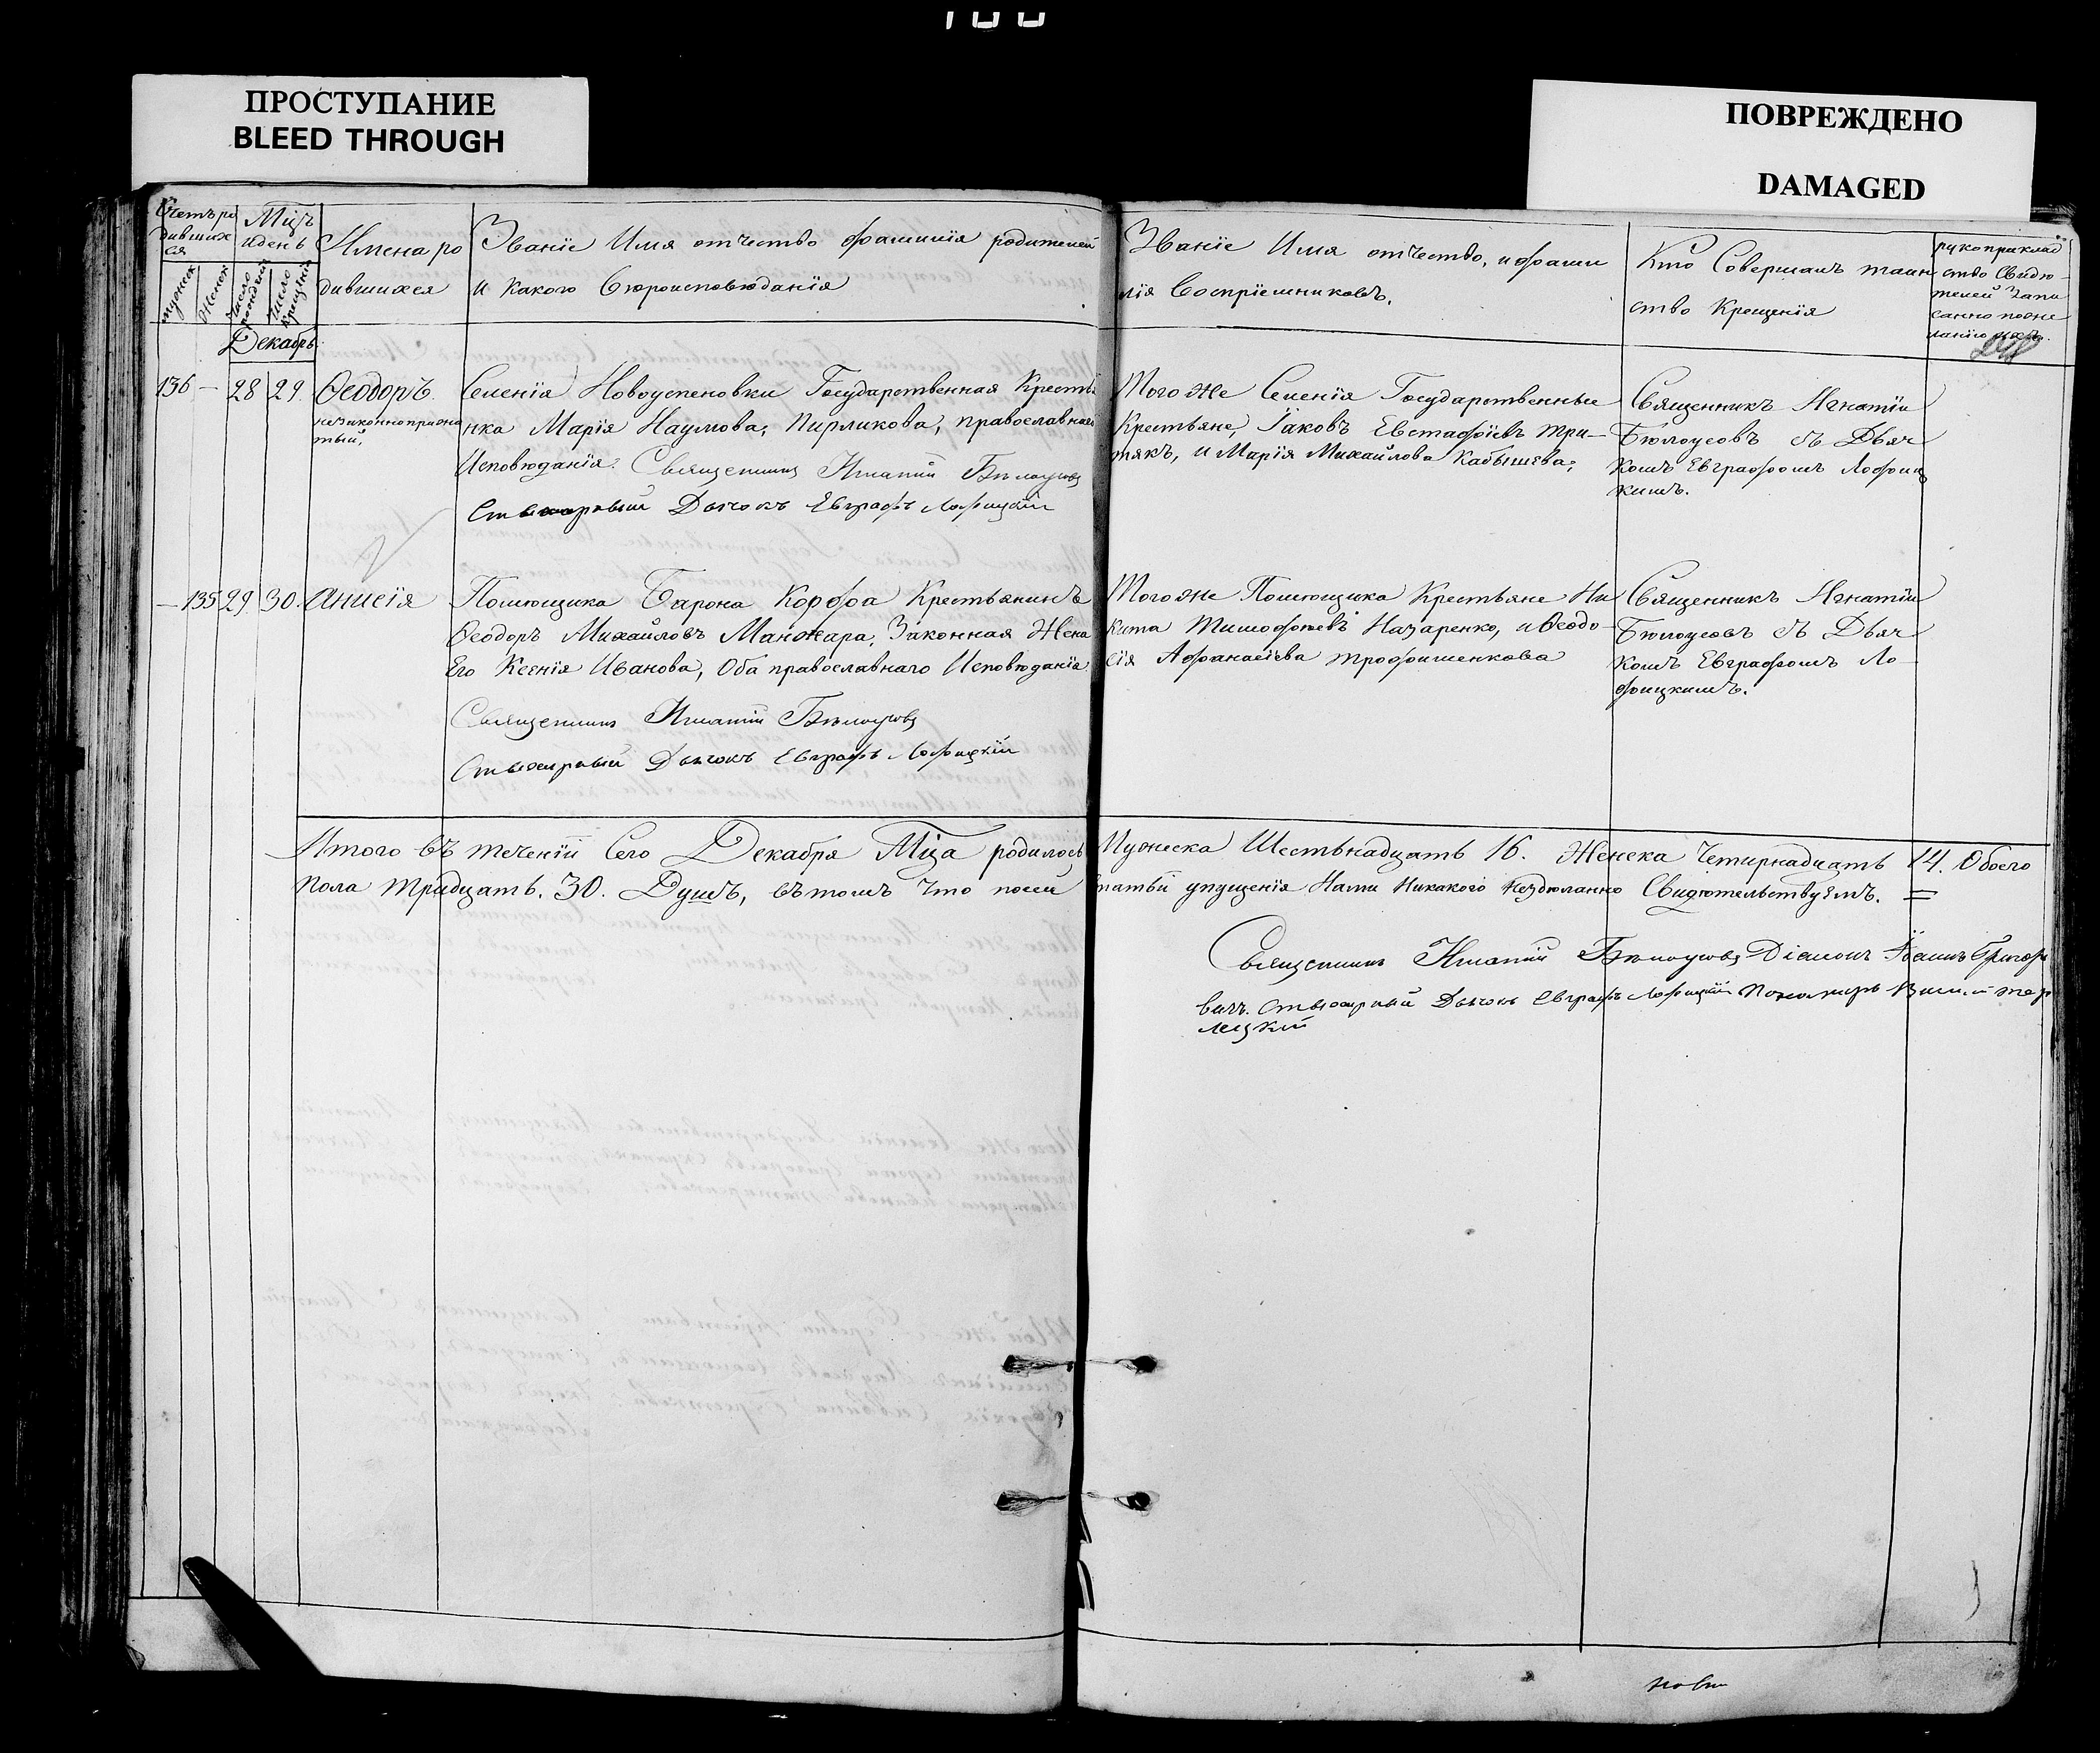 ПРОСТУПАНИЕ
BLEED THROUGH
ПОВРЕЖДЕНО
DAMAGED
Счетъ ро
дивших
ся
мужеск
Женск
Мцъ
и день
число рождения
Число крещения
Имена ро
дившихся
Званіе Имя отчество фамилія родителей
и какого Вѣроисповѣданія
Званіе Имя отчество, и фами
лія Воспріемниковъ.
Кто Совершалъ таин
ство Крещенія
рукоприклад
ство Свидѣ-
телей Запи
Декабрь
136 — 28 29. Ѳеодоръ
незаконно
Селенія Новоуспеновки Государственная Кресть
нка Марія Наумова, Пирликова, православнаго
Исповѣданія. Священникъ Игнатій Бѣлоусовъ
Дьячокъ Евграфъ Лофицкій
Того же Селенія Государственные
Крестьяне, Іаковъ Евстафіевъ Три-
тякъ, и Марія Михайлова Кабышева;
Священникъ Игнатіи
Бѣлоусовъ съ Дьяч
комъ Евграфомъ Лофиц
кимъ.
— 135 29 30. Анисія
Помѣщика Барона Корфа Крестьянинъ
Ѳеодоръ Михайловъ Манжара, Законная Жена
Его Ксенія Иванова, Оба православнаго Исповѣданія
Священникъ Игнатій Бѣлоусовъ
Дьячокъ Евграфъ Лофицкій
Того же Помѣщика Крестьяне Ни
кита Тимофѣевъ Назаренко, и Ѳеодо-
сія Афанасіева Трофименкова
Священникъ Игнатіи
Бѣлоусовъ съ Дьяч
комъ Евграфомъ Ло-
фицкимъ.
Итого въ теченіи Сего Декабря Мца родилось Мужеска Шестьнадцать 16. Женска Четирнадцать 14. Обоего
пола тридцать. 30. Душъ, въ томъ что посей статьи упущенія Нами Никакого Нездѣланно Свидѣтельствуемъ.
Священникъ Игнатій Бѣлоусовъ Діаконъ Григори
вичъ. Дьячокъ Евграфъ Лофицкій Пономарь
лецкій